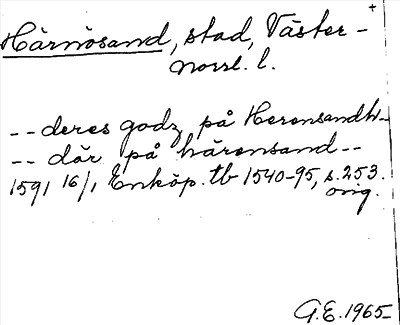 +
Härnösand, stad, Väster-
norrl. l.
-- deres godz på Herensandh--
-- där på härensand --
1591 16/1 Enköp. tb 1540-95, s. 253.
orig.
G.E. 1965-